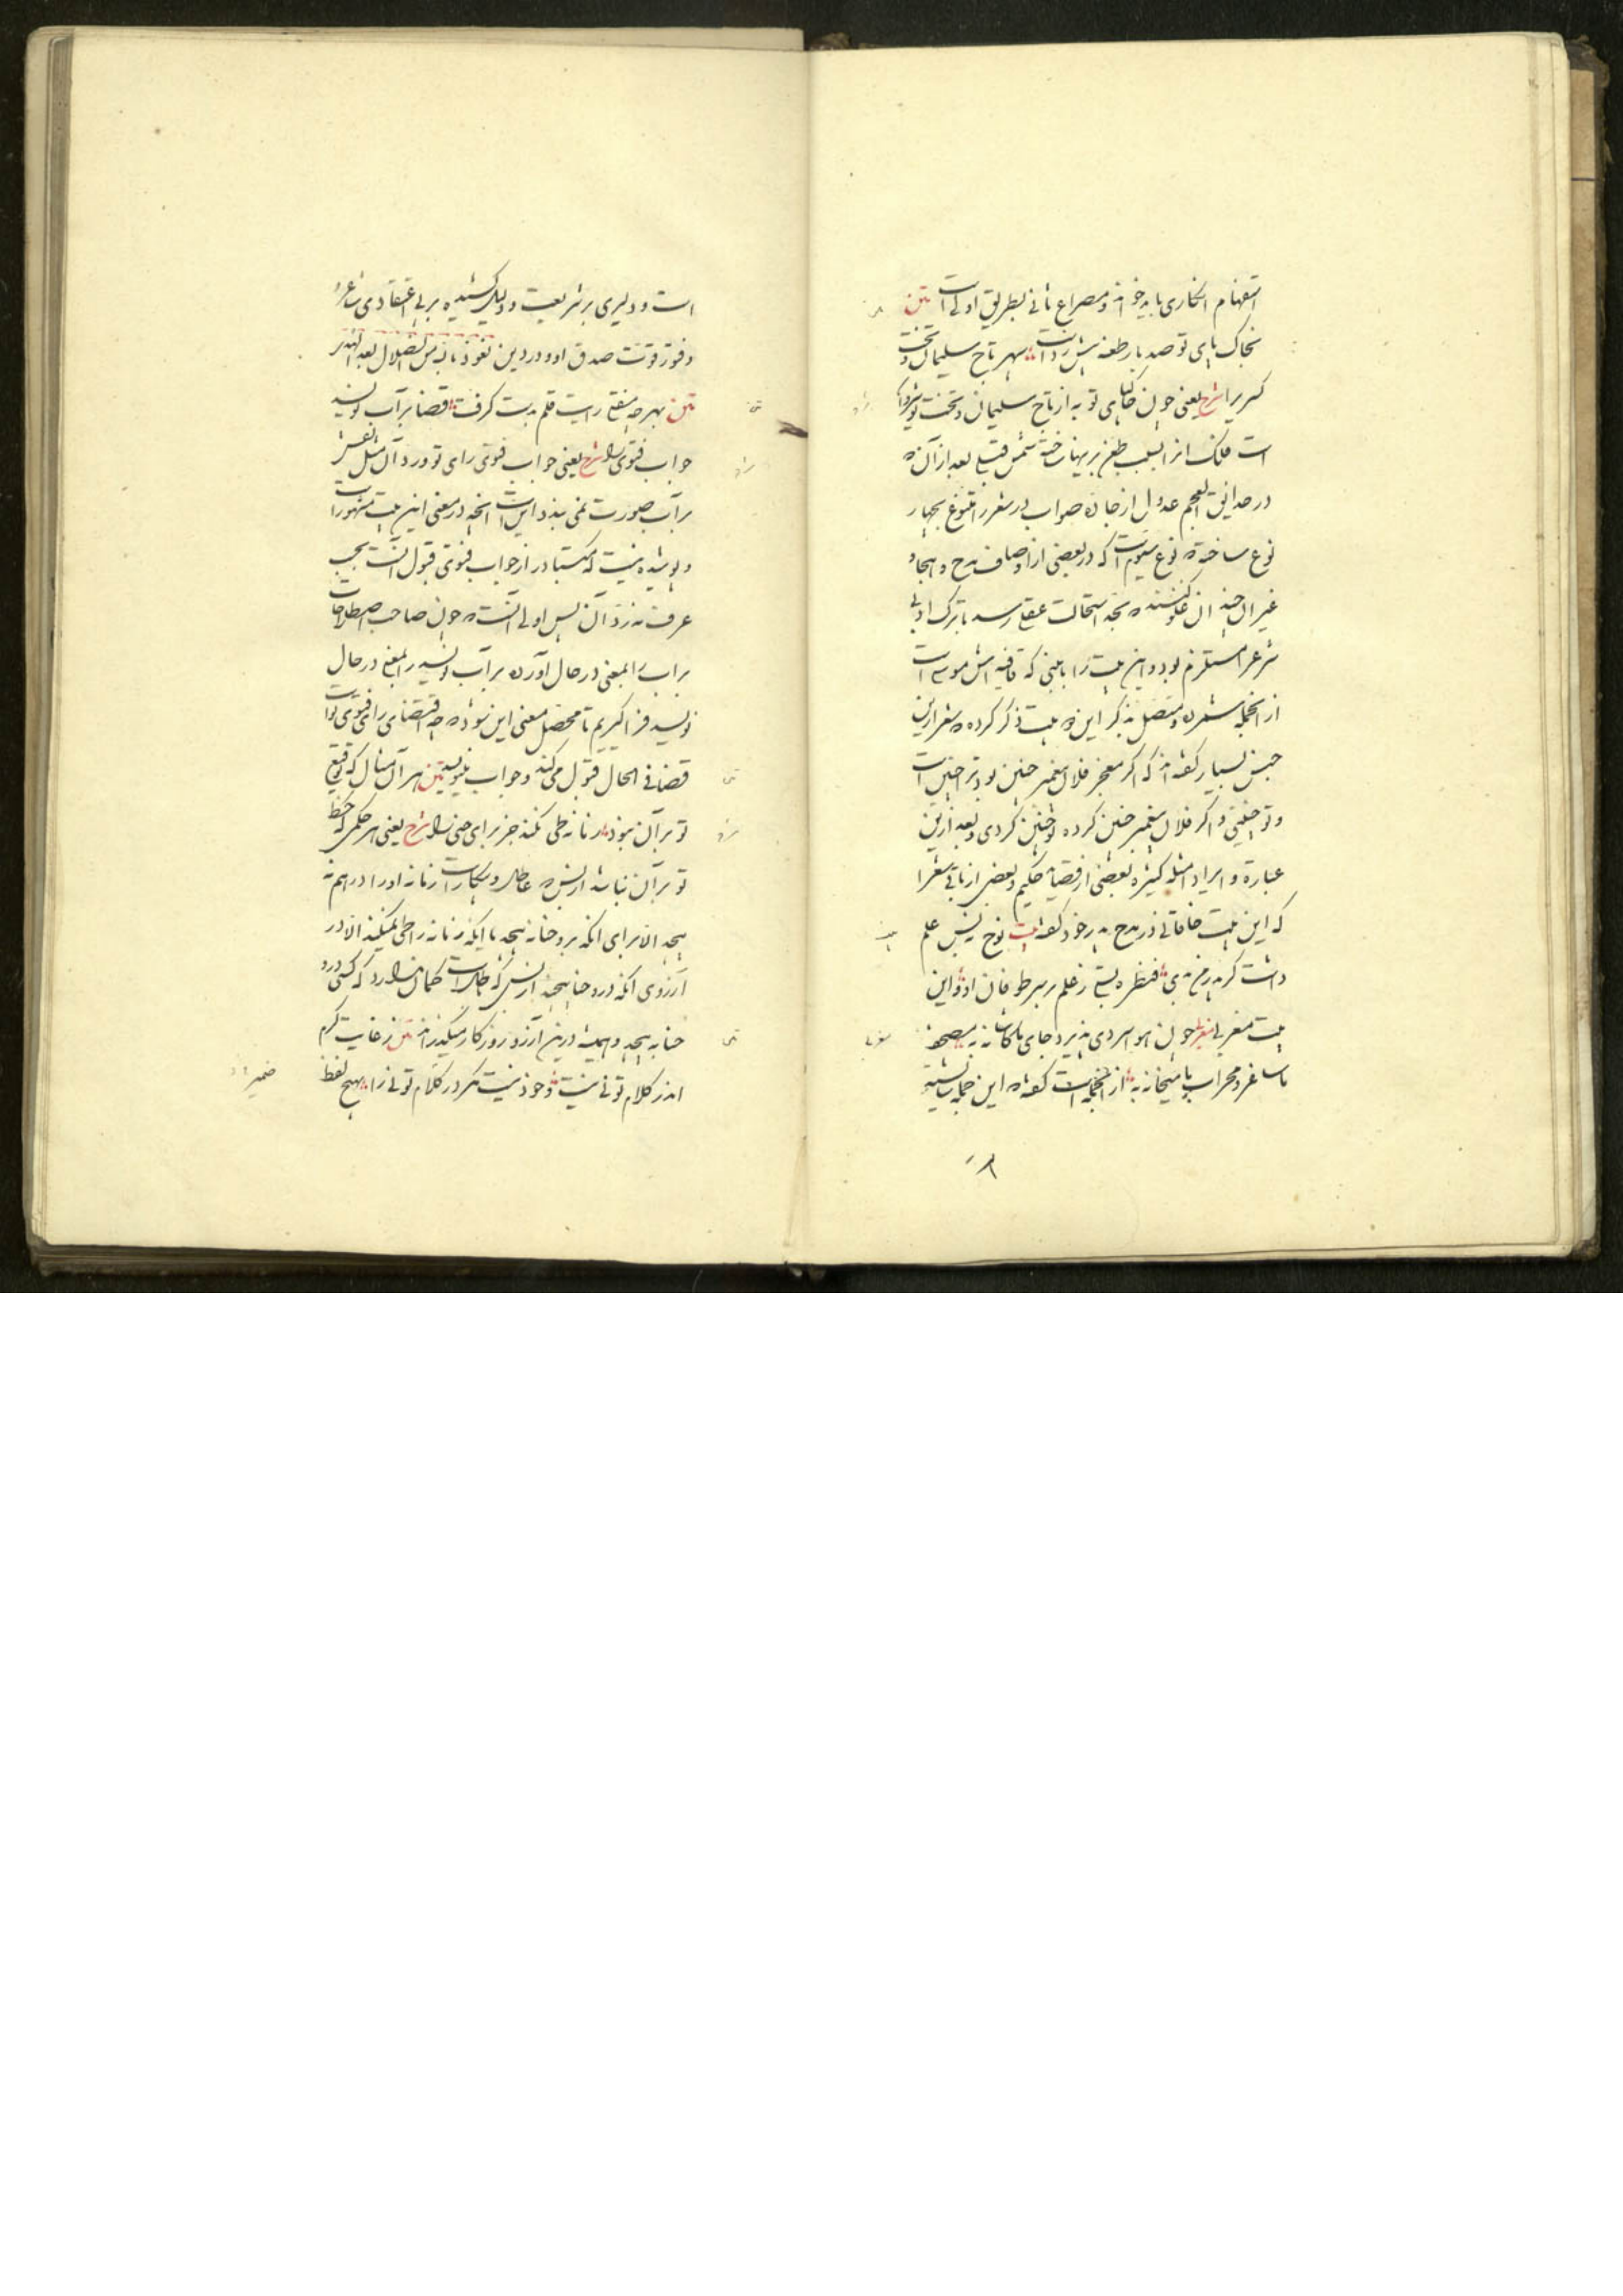 استفهام انکاری باید خواند و مصراع ثانی بطریق اولی است متن
بخاک پای تو صد بار طعنه بیش زدست سپهر تاج سلیمان و تخت
کسری را شرح یعنی چون خاکپای تو به از تاج سلیمان و تخت
است فلک انرا بسبب طعن بر ینها ساخته شمس قیس بعد از آن که
در حدائق العجم عدول از جاده صواب در شعر را متنوع بچهار
نوع ساخته که نوع سیوم آنست که در بعضی از اوصاف مدح و هجا و
غیر آن چندان غلو کنند که بحد استحالت عقلی رسد یا ترک ادبی
شرعی را مستلزم بود و این بیت را با بیتی که قافیه اش موسی است
از انجمله شمرده و متصل بذکر این دو بیت ذکر کرده که شعرا ازین
جنس بسیار گفته اند که اگر معجز فلان پیغمبر چنین بود ترا چنین است
و تو چنینی و اگر فلان پیغمبر چنین کرده تو چنین کردی و بعد ازین
عبارة و ایراد امثله کثیره بعضی از قصاید حکیم و بعضی از باقی شعرا
که این بیت خاقانی در مدح پدر خود گفته بیت نوح نه بس علم
داشت گر پدر من بدی قنطره بستی ز علم بر سر طوفان او و این
بیت مغربی شعر چون او سردی پذیرد جای ما کاشانه به مصحف
ما ساغر و محراب ما میخانه به از انجمله است گفته که این جمله ناشایسته
است و دلیری بر شریعت و دلیل کشیده بر بی اعتقادی شاعر و
وفور قوت صدق او در دین نعوذ بالله من الضلال بعد الهدی
متن بهر چه مفتی رایت قلم بدست گرفت قضا بر آب نویسد
جواب فتوی را شرح یعنی جواب فتوی رای تو در زد آن مثل نقش
بر آب صورت نمی بندد این است انچه در معنی این بیت مشهور است
و پوشیده نیست که متبادر از جواب فتوی قبول آنست بحسب
عرف نه زد آن پس اولی آنست که چون صاحب اصطلاحات
بر آب را بمعنی در حال آورده بر آب نویسد را بمعنی در حال
نویسد فرا گیریم تا محصل معنی این شود که چه اقتضای رای فتوی ترا
قضا فی الحال قبول می کند و جواب بنویسد متن هر آن مثال که توقیع
تو بر آن نبود زمانه طی نکند جز برای حنی را شرح یعنی هر حکمی که خط
تو بر آن نباشد از بس که عاطل و بیکار است زمانه او را در هم نه
پیچد الا برای آنکه برو حنا نه پیچد یا آنکه زمانه را طی نمیکند الا در
آرزوی انکه درو حنا پیچد از بس که عاطل است گمان ندارد که کسی درو
حنا به پیچد و همیشه درین آرزو روزگار میگذراند متن ز غایت کرم
اندر کلام تو نی نیست و خود نیست مگر در کلام تو نی را بهیچ لفظ